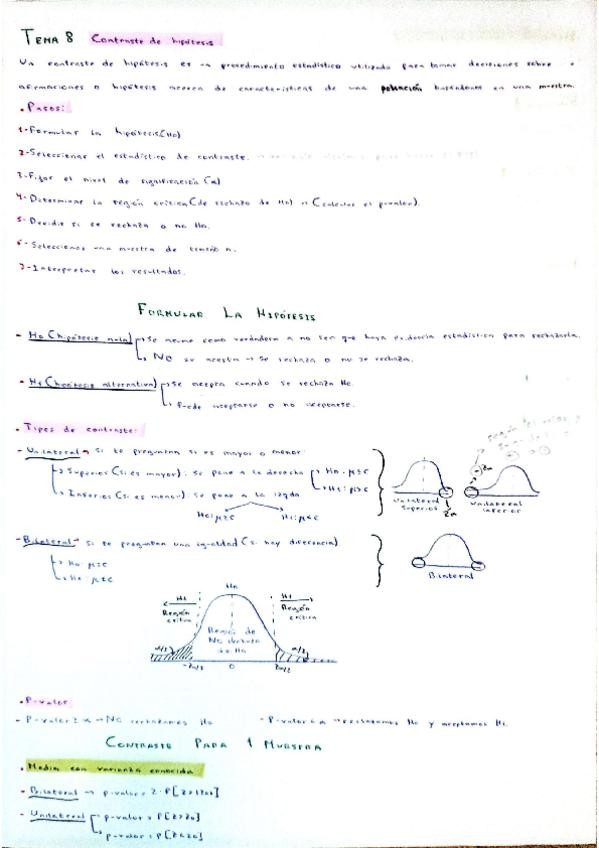 TEMA 8 Contraste de hipótesis
Un contraste de hipótesis es un procedimiento estadístico utilizado para tomar decisiones sobre
afirmaciones o hipótesis acerca de características de una población basándonos en una muestra.
• Pasos:
1-Formular la hipótesis (H₀)
2-Seleccionar el estadístico de contraste.
3-Fijar el nivel de significación (α)
4-Determinar la región crítica (de rechazo de H₀) o (calcular el p-valor).
5-Decidir si se rechaza o no H₀.
6-Seleccionar una muestra de tamaño n.
7-Interpretar los resultados.
FORMULAR LA HIPÓTESIS
- H₀ (hipótesis nula) Se asume como verdadera a no ser que haya evidencia estadística para rechazarla.
No se acepta → Se rechaza o no se rechaza.
- H₁ (hipótesis alternativa) Se acepta cuando se rechaza H₀.
Puede aceptarse o no aceptarse.
• Tipos de contraste:
- Unilateral → si te preguntan si es mayor o menor:
Superior (si es mayor): se pone a la derecha
Inferior (si es menor): se pone a la izqda
Unilateral superior
Unilateral inferior
- Bilateral → si te preguntan una igualdad (si hay diferencia)
Bilateral
H₀
H₁ Región crítica
H₁ Región crítica
Región de No rechazo de H₀
α/2
α/2
-Zα/2 0 Zα/2
• P-valor
- P-valor ≥ α → No rechazamos H₀ - P-valor < α → rechazamos H₀ y aceptamos H₁.
CONTRASTE PARA 1 MUESTRA
• Media con varianza conocida
- Bilateral → p-valor = 2·P[Z>|z₀|]
- Unilateral p-valor = P[Z>z₀]
p-valor = P[Z<z₀]